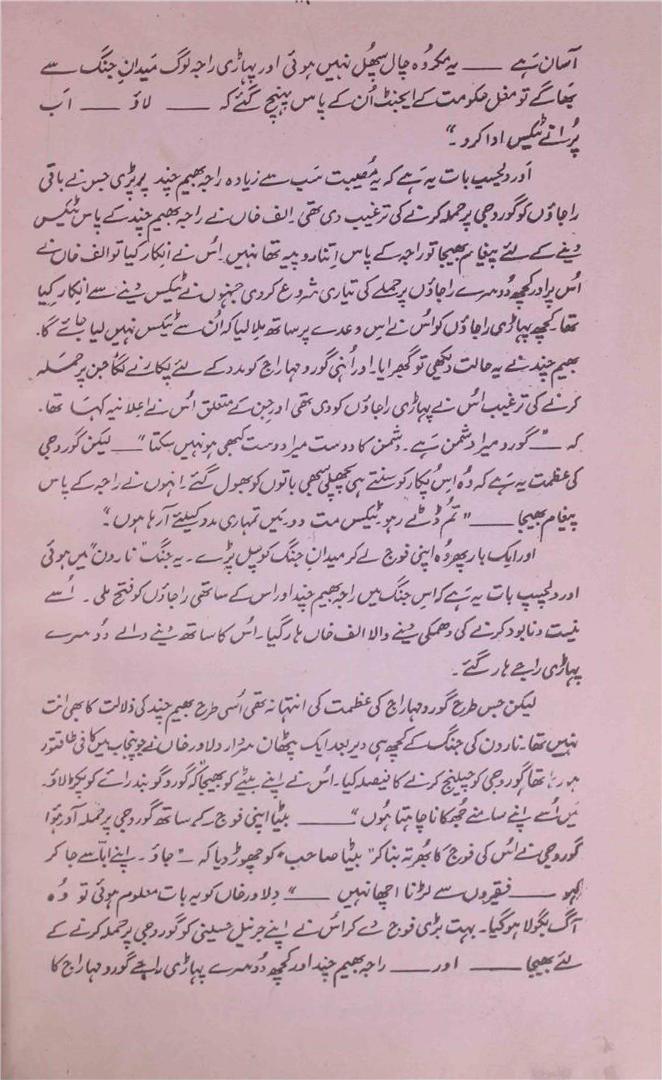 آسان ہے ــــــ یہ مکروہ چال سپھل نہیں ہوئی اور پہاڑی راجہ لوگ میدانِ جنگ سے
بھاگے تو مغل حکومت کے ایجنٹ اُن کے پاس پہنچ گئے کہ ــــــ لاؤ ــــــ اب
پُرانے ٹیکس ادا کرو۔"
اور دلچسپ بات یہ ہے کہ یہ مُصیبت سب سے زیادہ راجہ بھیم چند پر پڑی جس نے باقی
راجاؤں کو گوروجی پر حملہ کرنے کی ترغیب دی تھی۔ الف خاں نے راجہ بھیم چند کے پاس ٹیکس
دینے کے لئے پیغام بھیجا تو راجہ کے پاس اِتنا روپیہ تھا نہیں۔ اُس نے اِنکار کیا تو الف خاں نے
اُس پر اور کچھ دُوسرے راجاؤں پر حملے کی تیاری شروع کر دی جنہوں نے ٹیکس دینے سے انکار کیا
تھا۔ کچھ پہاڑی راجاؤں کو اُس نے اس وعدے پر ساتھ ملا لیا کہ اُن سے ٹیکس نہیں لیا جائے گا۔
بھیم چند نے یہ حالت دیکھی تو گھبرایا۔ اور اُنہی گورو مہاراج کو مدد کے لئے پکارنے لگا جن پر حملہ
کرنے کی ترغیب اُس نے پہاڑی راجاؤں کو دی تھی اور جن کے متعلق اُس نے اعلانیہ کہا تھا۔
کہ ــــ "گورو میرا دُشمن ہے۔ دُشمن کا دوست میرا دوست کبھی ہو نہیں سکتا" ــــ لیکن گوروجی
کی عظمت یہ ہے کہ وُہ اس پکار کو سنتے ہی پچھلی سبھی باتوں کو بھول گئے۔ انہوں نے راجہ کے پاس
پیغام بھیجا ــــــ "تُم ڈٹے رہو۔ ٹیکس مت دو۔ میں تمہاری مدد کیلئے آ رہا ہوں۔"
اور ایک بار پھر وُہ اپنی فوج لے کر میدانِ جنگ کو چل پڑے۔ یہ جنگ "نارون" میں ہوئی
اور دلچسپ بات یہ ہے کہ اس جنگ میں راجہ بھیم چند اور اس کے ساتھی راجاؤں کو فتح ملی۔ اُسے
نیست و نابود کرنے کی دھمکی دینے والا الف خاں ہار گیا۔ اُس کا ساتھ دینے والے دُوسرے
پہاڑی راجے ہار گئے۔
لیکن جس طرح گورو مہاراج کی عظمت کی انتہا نہ تھی اُسی طرح بھیم چند کی ذلالت کا بھی انت
نہیں تھا۔ نارون کی جنگ کے کچھ ہی دیر بعد ایک پٹھان سردار دلاور خاں نے جو پنجاب میں کافی طاقتور
ہو رہا تھا گوروجی کو چیلنج کرنے کا فیصلہ کیا۔ اُس نے اپنے بیٹے کو بھیجا کہ گورو گوبند رائے کو پکڑ لاؤ۔
میں اُسے اپنے سامنے جُھکانا چاہتا ہُوں" ــــــ بیٹا اپنی فوج کے ساتھ گوروجی پر حملہ آور ہُوا
گوروجی نے اُس کی فوج کا بُھرتہ بنا کر "بیٹا صاحب" کو چھوڑ دیا کہ ــ "جاؤ۔ اپنے ابّا سے جا کر
کہو ــــــ فقیروں سے لڑنا اچھا نہیں ــــــ" دِلاور خاں کو یہ بات معلوم ہوئی تو وُہ
آگ بگولا ہو گیا۔ بہت بڑی فوج دے کر اُس نے اپنے جرنیل حسینی کو گوروجی پر حملہ کرنے کے
لئے بھیجا ــــــ اور ــــــ راجہ بھیم چند اور کچھ دُوسرے پہاڑی راجے گورو مہاراج کا